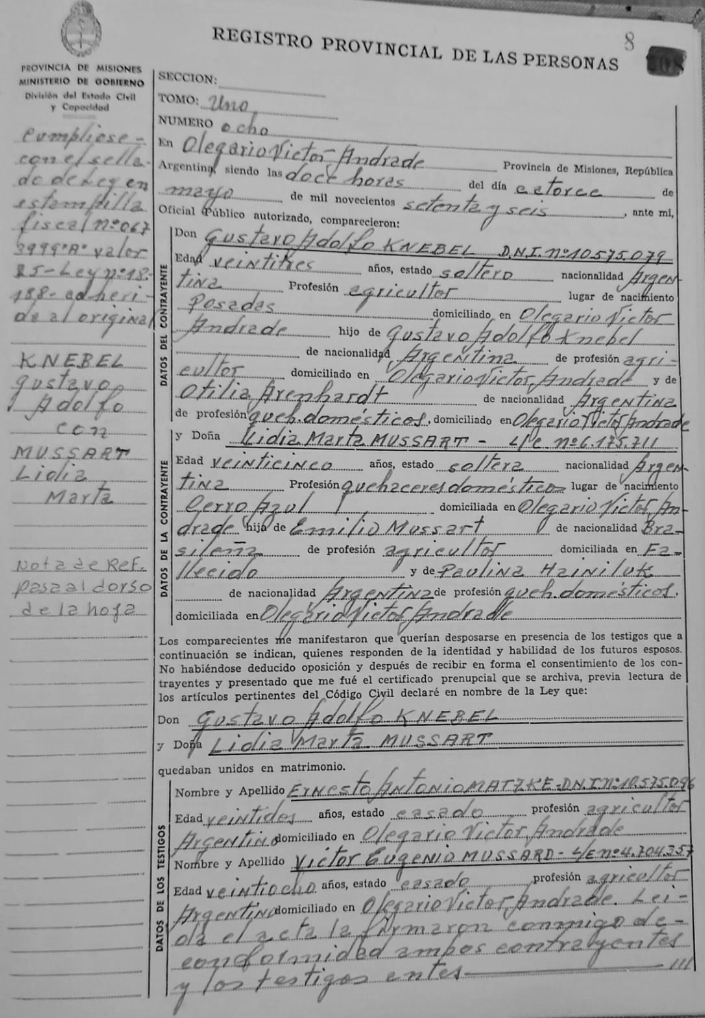 8
REGISTRO PROVINCIAL DE LAS PERSONAS
PROVINCIA DE MISIONES
MINISTERIO DE GOBIERNO
División del Estado Civil
y Capacidad
cumpliose-
con el sella-
do de Ley en
estampilla
fiscal nº 067
3999"A" valor
25-Ley nº 18.
188- adheri-
do al original
KNEBEL
Gustavo
Adolfo
con
MUSSART
Lidia
Marta
Nota de Ref.
pasa al dorso
de la hoja
SECCION:
TOMO: Uno
NUMERO ocho
En Olegario Victor Andrade Provincia de Misiones, República
Argentina, siendo las doce horas del día catorce de
mayo de mil novecientos setenta y seis, ante mi,
Oficial Público autorizado, comparecieron:
DATOS DEL CONTRAYENTE
Don Gustavo Adolfo KNEBEL D.N.I. nº 10.575.079
Edad veintitres años, estado soltero nacionalidad Argen-
tina Profesión agricultor lugar de nacimiento
Posadas domiciliado en Olegario Victor
Andrade hijo de Gustavo Adolfo Knebel
de nacionalidad Argentina de profesión agri-
cultor domiciliado en Olegario Victor Andrade y de
Otilia Arenhardt de nacionalidad Argentina
de profesión queh.domésticos, domiciliado en Olegario Victor Andrade
DATOS DE LA CONTRAYENTE
y Doña Lidia Marta MUSSART - L/c nº 6.175.711
Edad veinticinco años, estado soltera nacionalidad Argen-
tina Profesión quehaceres doméstico lugar de nacimiento
Cerro Azul domiciliada en Olegario Victor An-
drade hijo de Emilio Mussart de nacionalidad Bra-
sileña de profesión agricultor domiciliada en Fa-
llecido y de Paulina Hainiluk
de nacionalidad Argentina de profesión queh.domésticos.
domiciliada en Olegario Victor Andrade
Los comparecientes me manifestaron que querían desposarse en presencia de los testigos que a
continuación se indican, quienes responden de la identidad y habilidad de los futuros esposos.
No habiéndose deducido oposición y después de recibir en forma el consentimiento de los con-
trayentes y presentado que me fué el certificado prenupcial que se archiva, previa lectura de
los artículos pertinentes del Código Civil declaré en nombre de la Ley que:
Don Gustavo Adolfo KNEBEL
y Doña Lidia Marta MUSSART
quedaban unidos en matrimonio.
DATOS DE LOS TESTIGOS
Nombre y Apellido Ernesto Antonio MATZKE-D.N.I. nº 10.575.096
Edad veintidos años, estado casado profesión agricultor
Argentino domiciliado en Olegario Victor Andrade
Nombre y Apellido Victor Eugenio MUSSARD- L/E nº 4.704.357
Edad veintiocho años, estado casado profesión agricultor
Argentino domiciliado en Olegario Victor Andrade. Lei-
da el acta la firmaron conmigo de-
conformidad ambos contrayentes
y los testigos antes ///